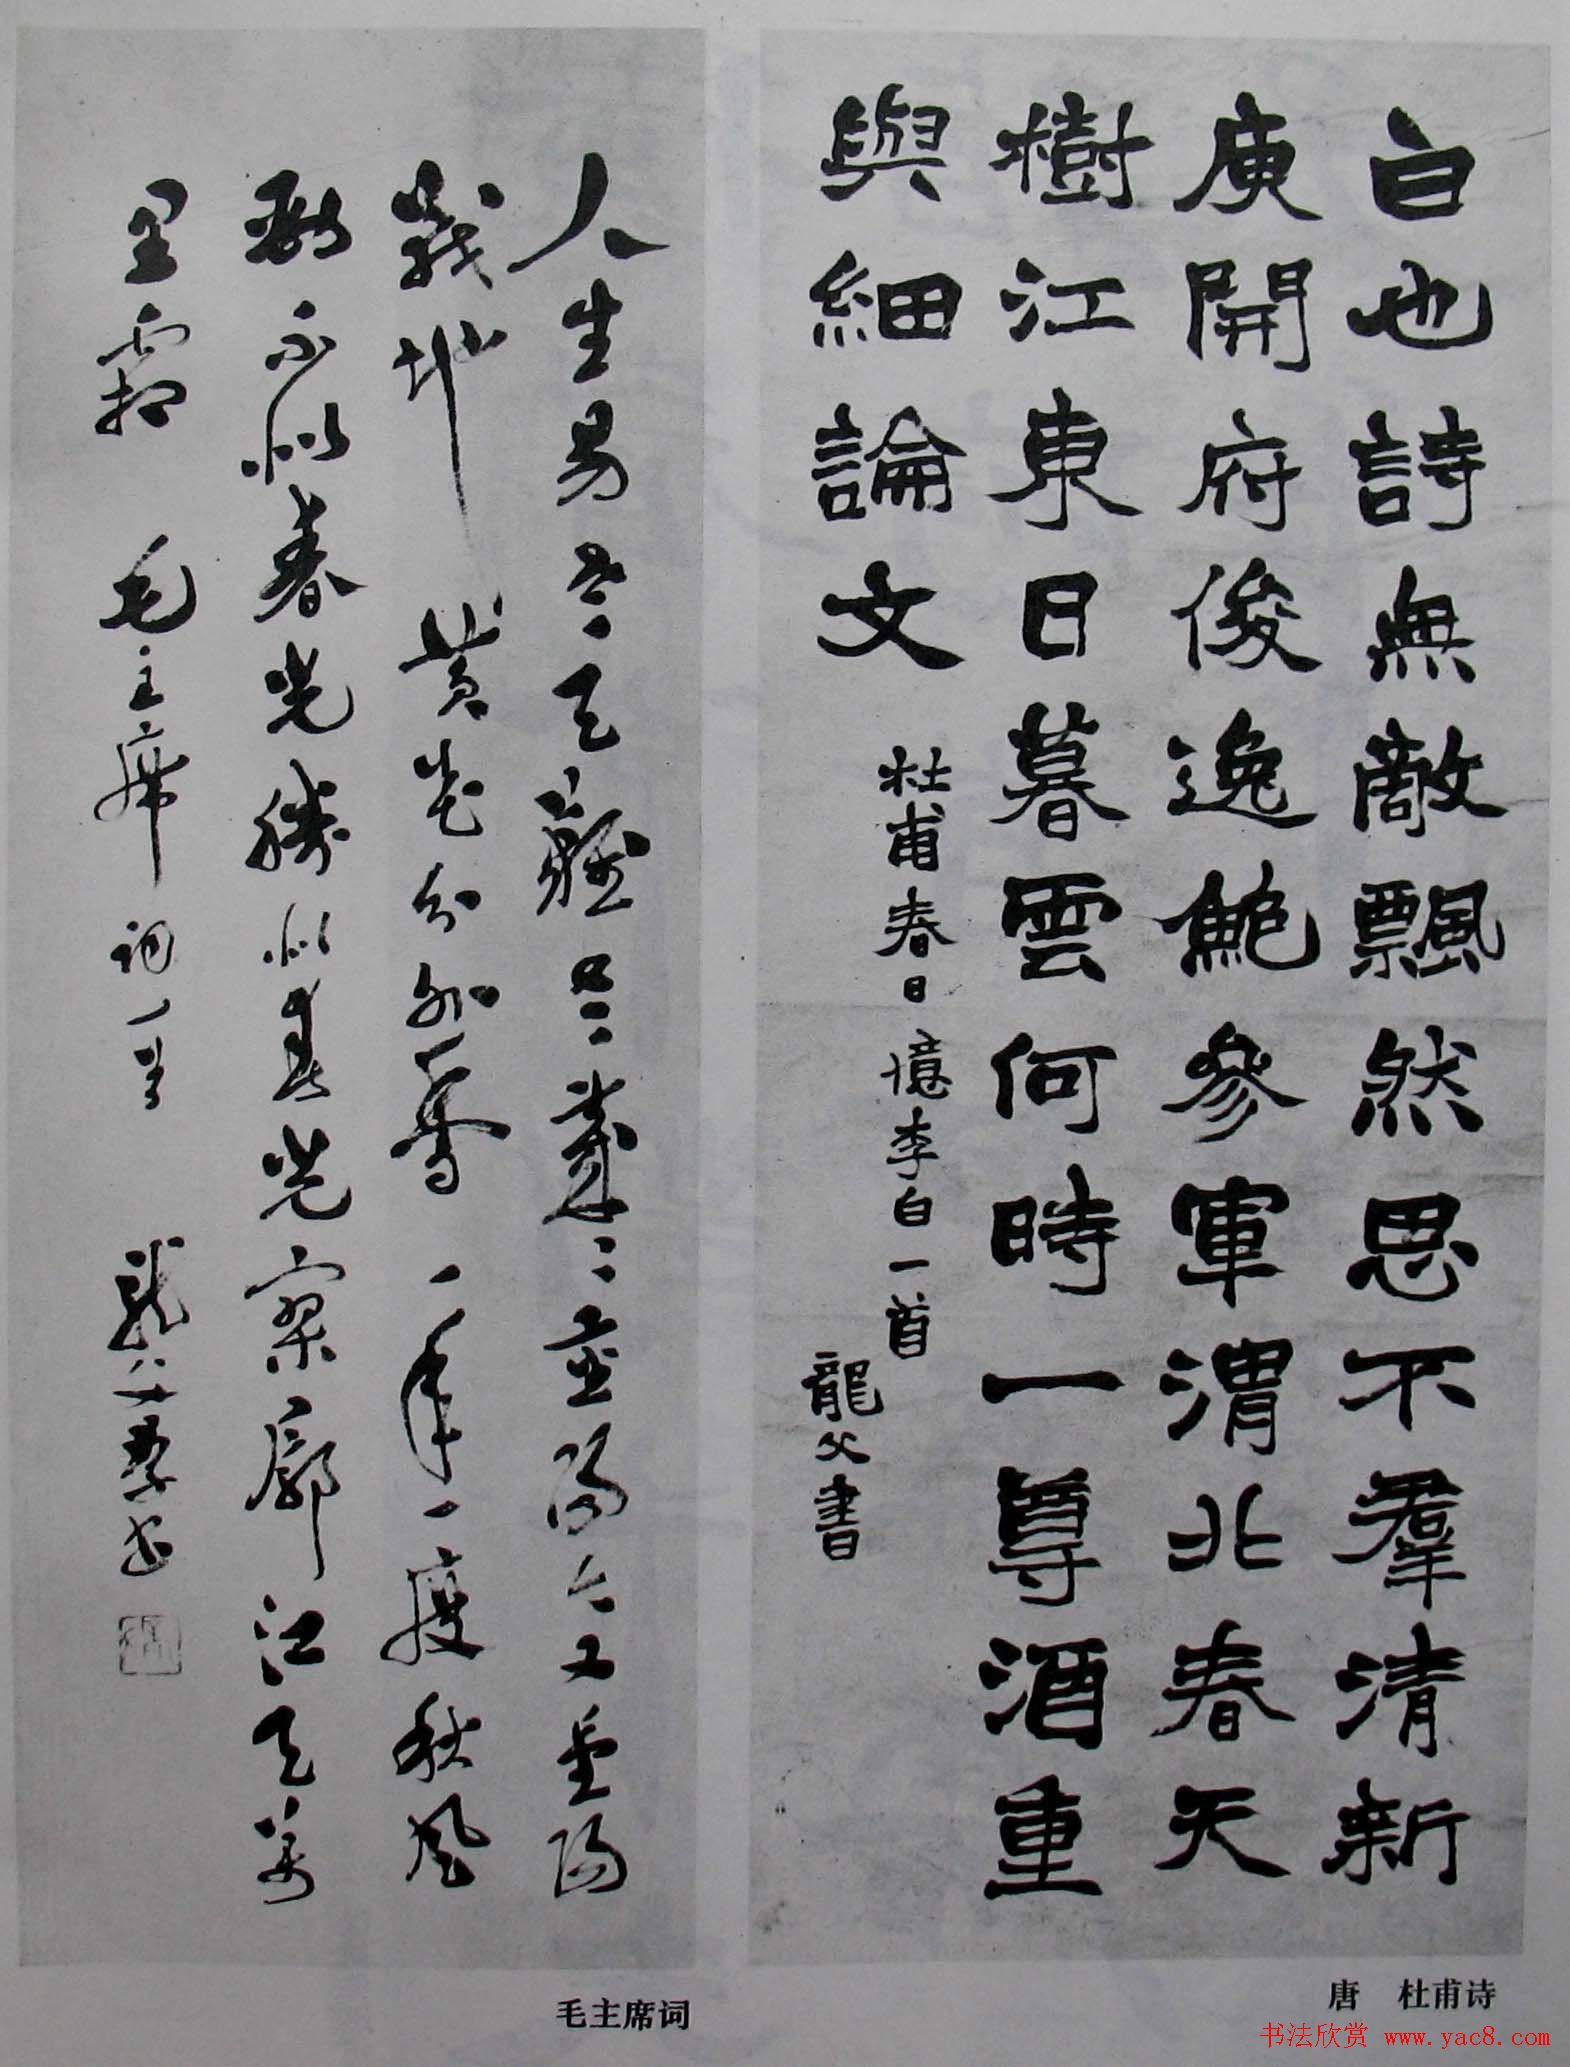 白也詩無敵飄然思不羣清新
庾開府俊逸鮑參軍渭北春天
樹江東日暮雲何時一尊酒重
與細論文
杜甫春日憶李白一首
龍父書
人生易老天難老歲〻重陽今又重陽
戰地黃花分外香一年一度秋風
勁不似春光勝似春光寥廓江天萬
里霜 毛主席詞一首
唐 杜甫诗
毛主席词
书法欣赏 www.yac8.com